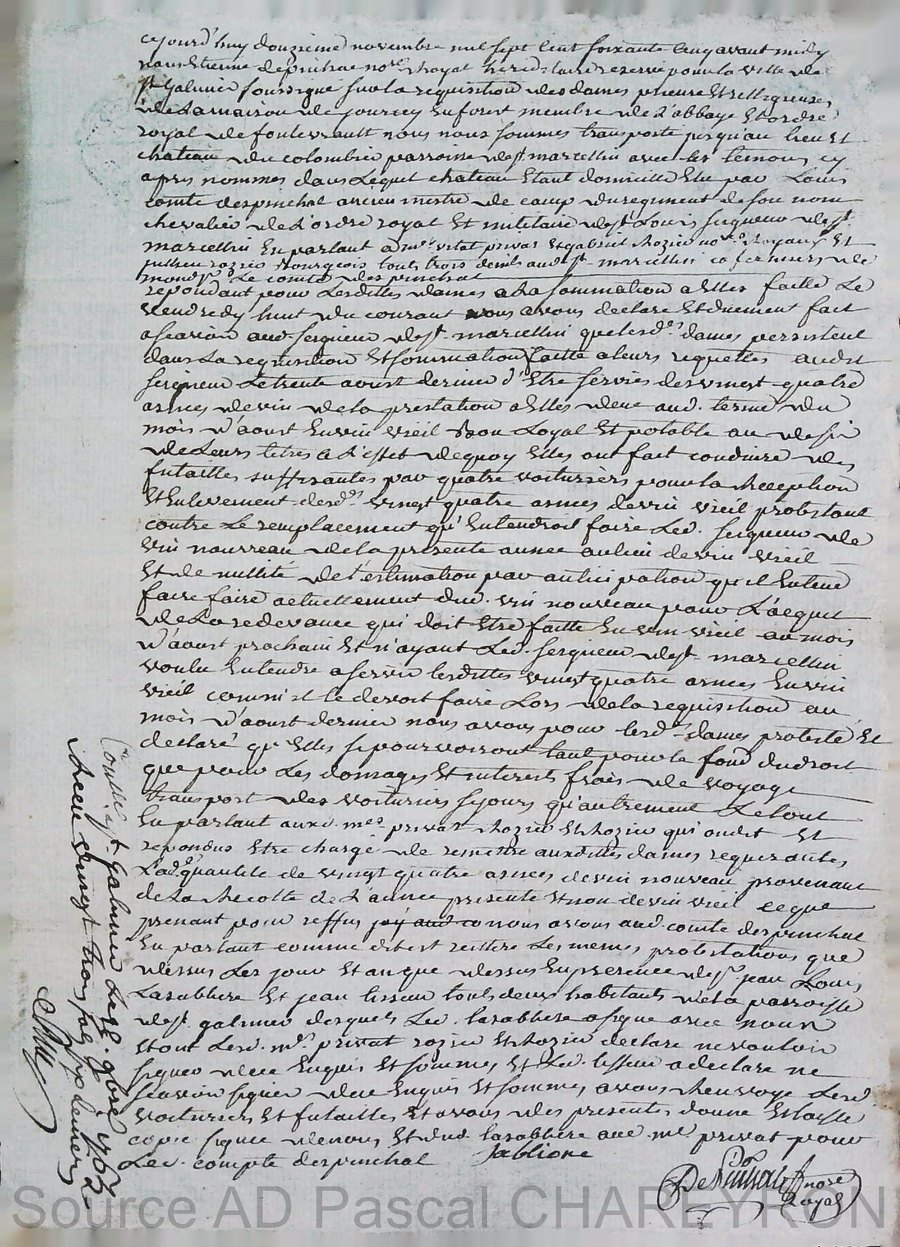 cejourd'huy douzieme novembre mil sept cent soixante cinq avant midy
nous Etienne depinhac no.re Royal hereditaire reservé pour la ville de
st Galmier soussigné sur la requisition des dames prieure et religieuses
de la maison de jourcey en forest membre de l'abbaye et ordre
royal de fontevrault nous nous sommes transporté jusqu'au lieu et
chateau du colombier parroisse de st marcellin avec les temoins cy
apres nommés dans lequel chateau etant domicille elu par Louis
comte despinchal ancien mestre de camp du regiment de son nom
chevalier de l'ordre royal et militaire de st Louis seigneur de st
marcellin en parlant a m.rs vital privat et gabriel Rozier no.res Royaux et
Rozier Bourgeois touts trois dud. st marcellin fermiers de
mond. sr Le comte despinchal
repondant pour Lesdittes dames a la sommation a elles faitte Le
vendredy huit du courant nous avons declaré et duement fait
a scavoir aud. seigneur de st marcellin que lesd. dames persistent
dans La requisition et sommation faitte a leurs requettes audit
seigneur Le trente aoust dernier d'Etre servies des vingt quatre
asnees de vin de la prestation a elles deue aud. terme du
mois d'aoust en vin vieil bon Loyal et potable au desir
de Leurs titres a l'effet de quoy elles ont fait conduire des
futailles suffisantes par quatre voituriers pour la Reception
et enlevement desd. vingt quatre asnees de vin vieil protestant
contre Le remplacement qu'entendroit faire Led. seigneur de
vin nouveau de la presente annee au lieu de vin vieil
et de nullité de l'estimation par anticipation qu'il entend
faire faire actuellement dud. vin nouveau pour L'acquit
de La redevance qui doit Etre faitte en vin vieil au mois
d'aoust prochain et n'ayant Led. seigneur de st marcellin
voulu entendre a servir lesdittes vingt quatre asnees en vin
vieil comm'il le devoit faire Lors de la requisition au
mois d'aoust dernier nous avons pour lesd. dames protesté et
declaré qu'Elles se pourvoiront tant pour le fond du droit
que pour Les domages et interets frais de voyage
transport des voituriers sejours qu'autrement Le tout
En parlant auxd. m.rs privat Rozier et Rozier qui ont dit et
repondu etre chargé de remettre auxdittes dames requerantes
Lad. quantité de vingt quatre asnees de vin nouveau provenant
de la Recolte de L'année presente et non de vin vieil ce que
prenant pour reffus nous avons aud. comte despinchal
En parlant comme dit est reiteré Les memes protestations que
dessus Les jour et an que dessus en presence de sr jean Louis
Lasablière et jean tisseur touts deux habitants de la parroisse
de st galmier desquels Led. lasabliere a signé avec nous
et ont Lesd. m.rs privat rozier et Rozier declaré ne vouloir
signer de ce Enquis et sommés, et Led. tisseur a declaré ne
scavoir signer de ce Enquis et sommé, avons Renvoyé Lesd.
voituriers et futailles et avons des presentes donné et laissé
copie signée de nous et dud. lasabliere aud. m.r privat pour
Led. compte despinchal
Sablione
De Pinhac no.re
Royal
Controllé a st galmier Le 9.bre 1765
Receu vingt trois sols deniers
Source AD Pascal CHAREYRON